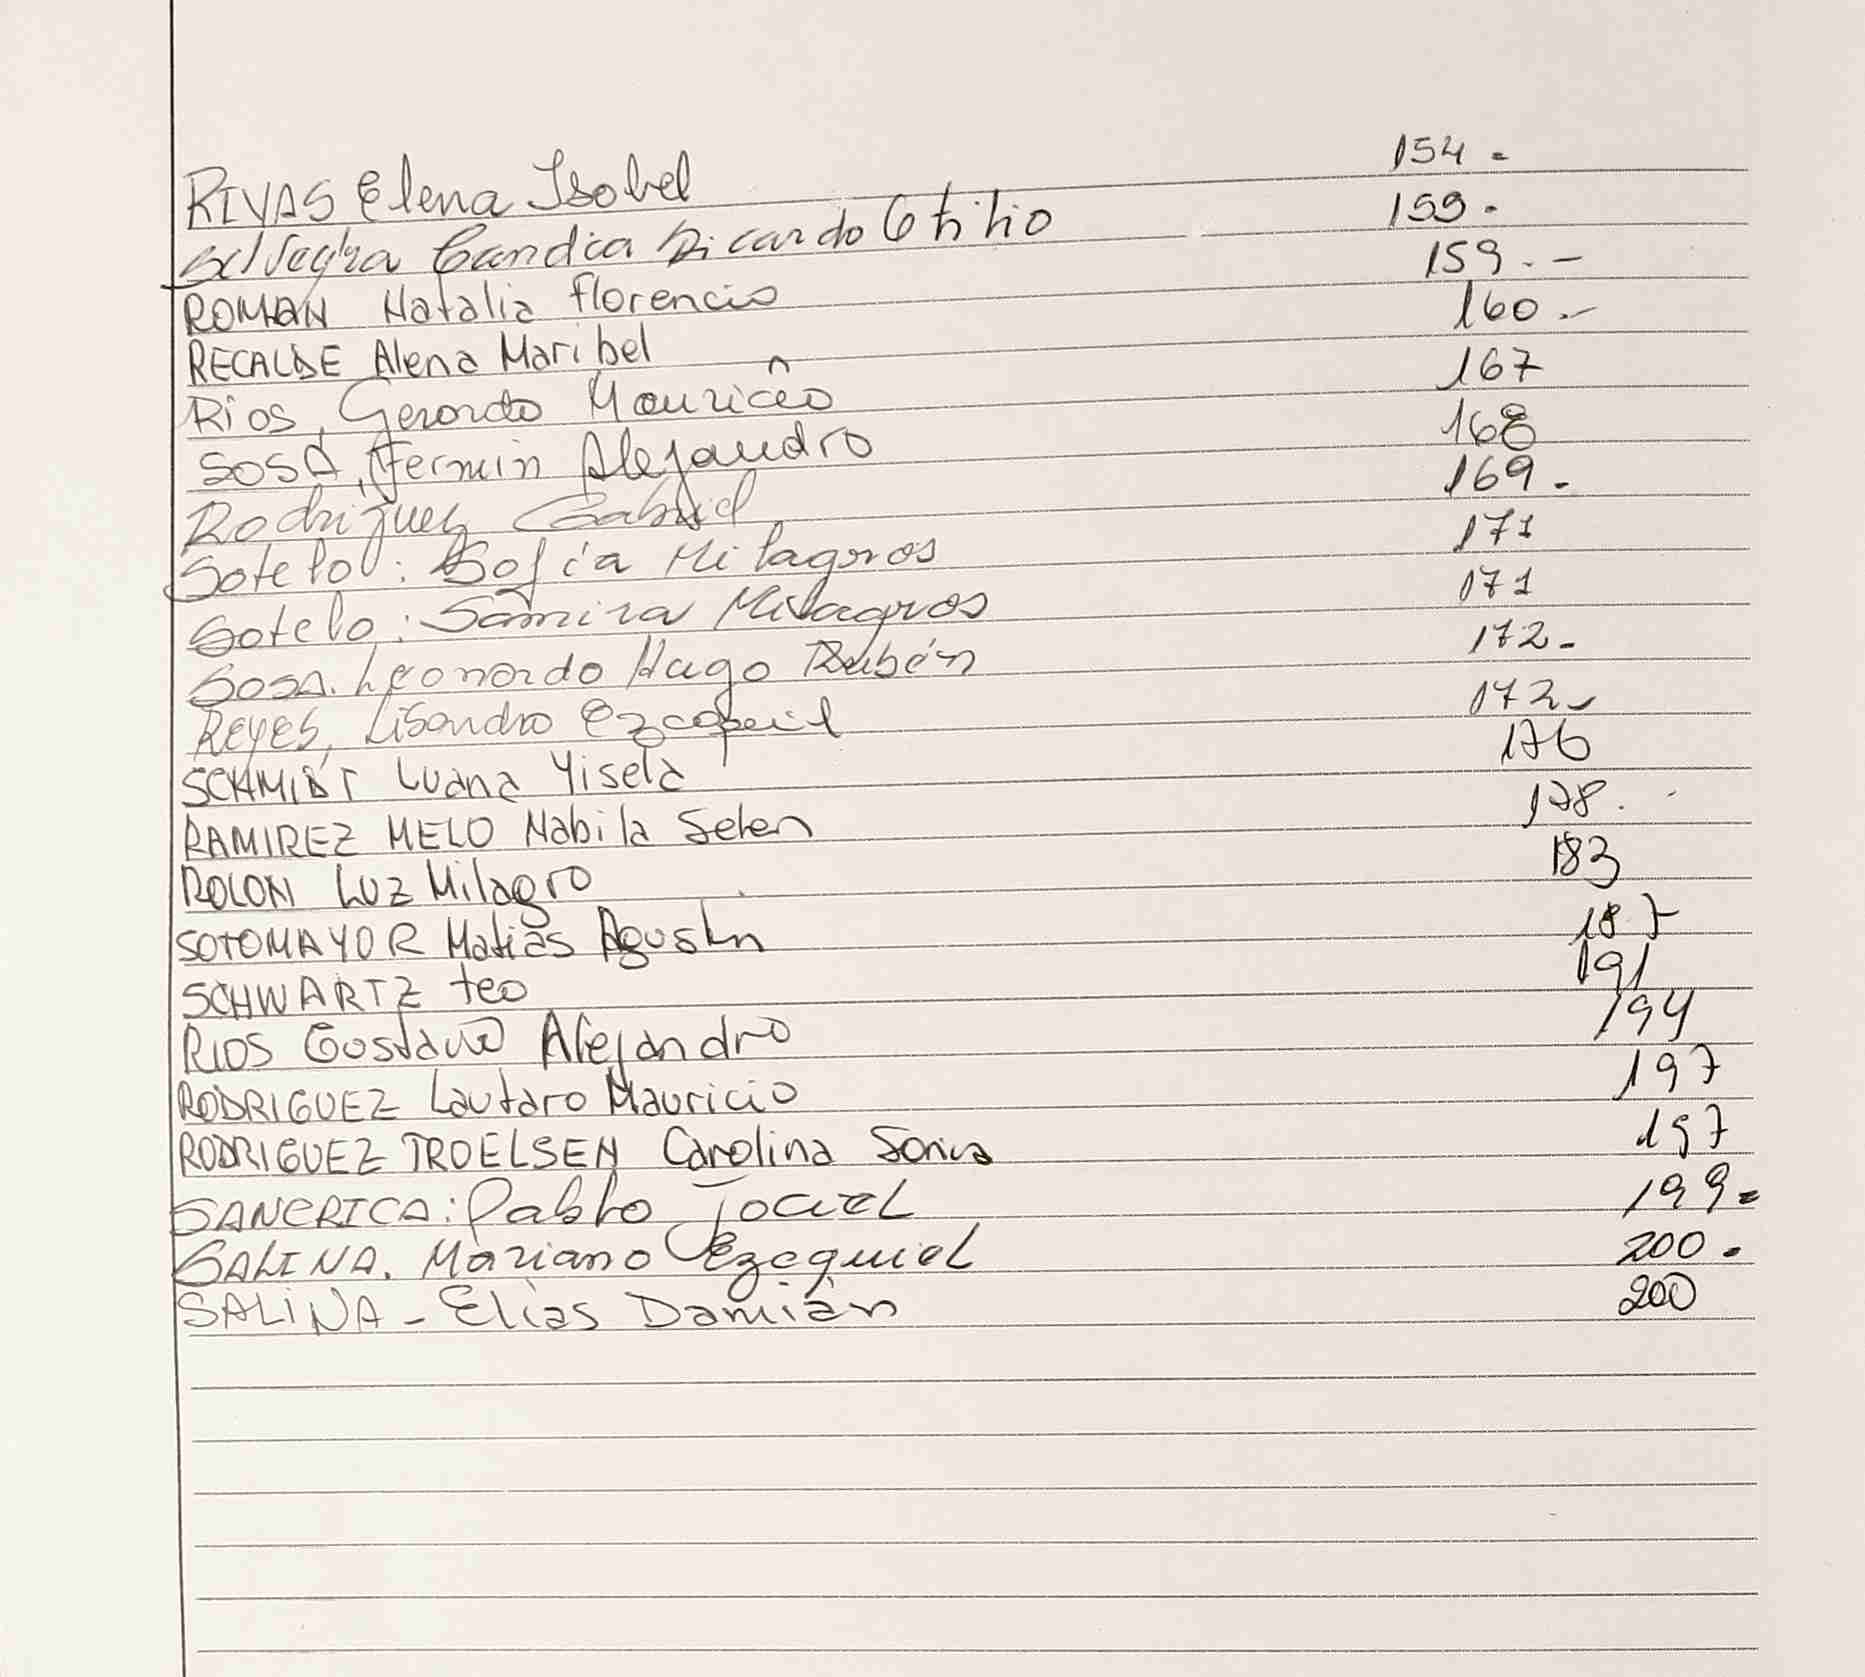 RIVAS Elena Isabel 154 -
Candia Ricardo Otilio 159 .
ROMAN Natalia florencia 159 . -
RECALDE Alena Maribel 160 .-
Rios, Gerardo Mauricio 167
SOSA, Fermin Alejandro 168
Rodriguez Gabriel 169 .
Sotelo : Sofía Milagros 171
Sotelo : Samira Milagros 171
Sosa. Leonardo Hugo Rubén 172 -
Reyes, Lisandro 172 -
SCHMIDT Luana Yisela 176
RAMIREZ MELO Nabila Selen 178 .
ROLON Luz Milagro 183
SOTOMAYOR Matias Agustin 187
SCHWARTZ teo 191
RIOS Gustavo Alejandro 194
RODRIGUEZ Lautaro Mauricio 197
RODRIGUEZ TROELSEN Carolina Sonia 197
Pablo Joael 199 =
SALINA. Mariano Ezequiel 200 .
SALINA - Elias Damián 200